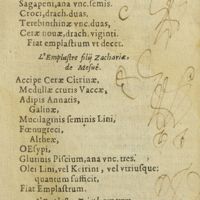 Sagapeni, ana vnc.semis.
Croci, drach. duas.
Terebinthinæ vnc. duas,
Ceræ nouæ, drach. viginti.
Fiat emplastrum vt decet.
L'Emplastre filij Zachariæ,
de Mesué.
Accipe Ceræ Citrinæ,
Medullæ cruris Vaccæ,
Adipis Annatis,
Galinæ,
Mucilaginis seminis Lini,
Fœnugreci,
Altheæ,
OEsypi,
Glutinis Piscium, ana vnc. tres.
Olei Lini, vel Keirini, vel vtriusque:
quantum sufficit.
Fiat Emplastrum.